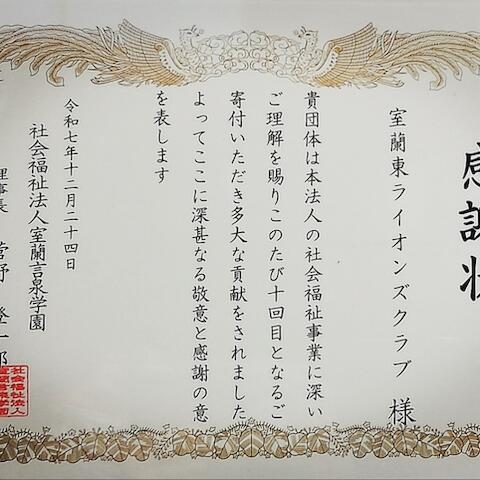 感謝状
室蘭東ライオンズクラブ 様
貴団体は本法人の社会福祉事業に深い
ご理解を賜りこのたび十回目となるご
寄付いただき多大な貢献をされました
よってここに深甚なる敬意と感謝の意
を表します
令和七年十二月二十四日
社会福祉法人室蘭言泉学園
理事長 菅野 登一郎
社会福祉法人
室蘭言泉学園